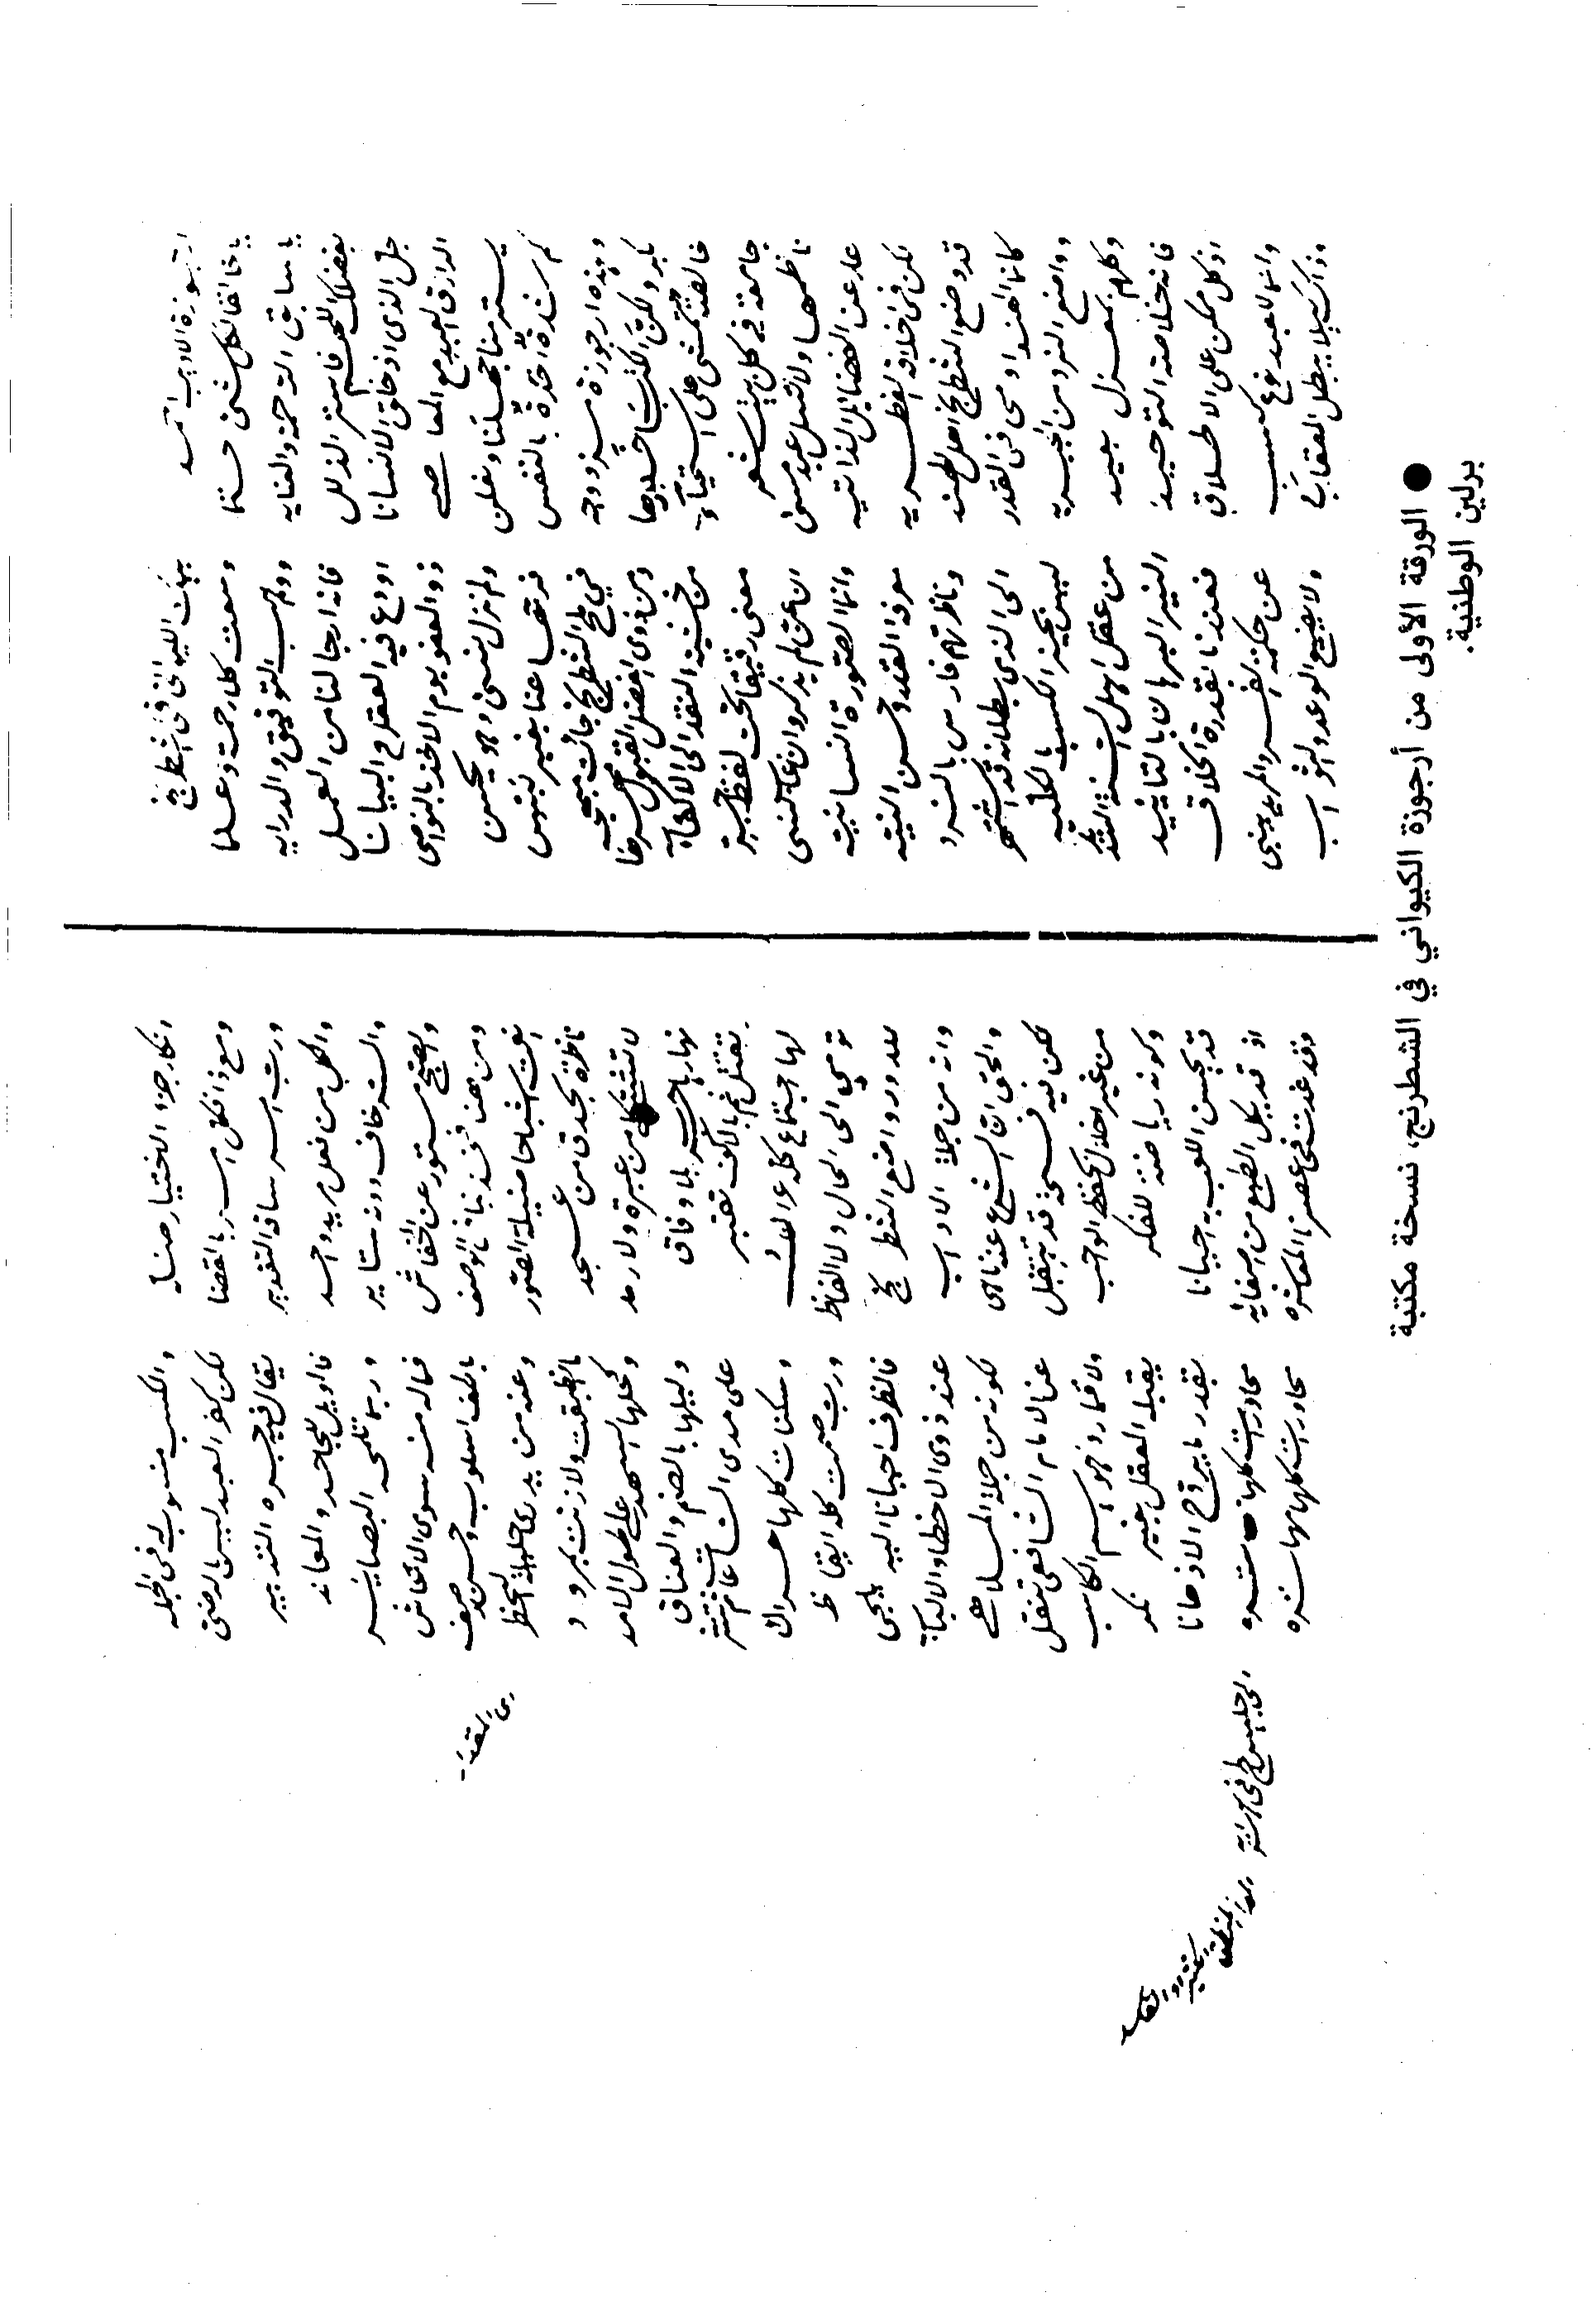 ارجوزة الاديب احمد بيك الكيواني في الشطرنج
يا خالقا لكل شئ حسنا وسعت كل رحمة وعلما
يا سابق الرحمة والعنايه وواهب التوفيق والدرايه
بفضلك اللهم فاستر الزلل فانه ارجا لنا من العمل
جل الذي اذ خلق الانسانا اودع فيه العقل والبيانا
الرازق العبيد مع المعاصي ذو العفو يوم الاخذ بالنواصي
يسترنا جهلنا ونعلن ولم نزل نسئ وهو يحسن
كم شدة اخذة بالنفس فرجها عنا بغير
وهذه ارجوزة مزدوجه في لمح الشطرنج جائت مبهجه
بكر ولكن ومن ذوي الفضل القبول مهرها
تمشي على استحياء من خشية النقد الى الاكفاء
جامعة في كل بيت شعر معنى رقيقا تحت لفظ حر
ناظمها ولا تسل عبد مسي ان عن لم يذكر وان غاب نسي
عار عن الفضائل الذاتيه وانما الصورة انسانيه
لكن في اخلاقه الفطريه معرفة القدر وحسن النيه
قد وضع الشطرنج اهل الهند وناظرتهم فارس بالنرد
كانما الهند اومى في القدر الى الذي بطلانه قد اشتهر
وواضع النرد من الجبريه ليس يجيز الكسب بالكليه
وكلهم بمعزل بعيد من عقل اهل السنة
فانه خلاصة التوحيد النير البرهان بالتاييد
اذ كل ممكن على الاطلاق فعندنا بقدرة الخلاق
وانما للعبد نوع كسب عن حكمة ينبي
وذاك كيلا يبطل العقاب ولا يضيع الوعد والثواب
انكار جزء الاختيار ضله والكسب منسوب له في الجمله
ومع ذا فكل امر بالقضا لكن كفر العبد ليس بالرضى
ورب امر ساقه التقدير يقال فيه جره التدبير
والكل من فعل مريد واحد فالويل للجاحد والمعاند
والسر خاف دونه ستاير وربما تلمحه البصاير
والصبح مستور عن الخفاش فماله منه سوى الايحاش
ومن هنا فخذ بنا في الوصف بالطف اسلوب وحسن رصف
انعت اشباحا ضئيلة الصور وعند من يدري جليلة الخطر
ناظرة بحدق من عسجد ما انطبقت ولا رنت بمرود
لا تشتكي من عبرة ولا رمد وكحلها السهد على طول الامد
نهارها حرب بلا وفاق وليلها بالضم والعناق
تقتل ثم بالاكف تقبر على مدى الساعات ثم تنشر
لها اجتماع كله عراك وسكنات كلها حراك
تومي الى الحال ولا الفاظ ورب صمت كله ايقاظ
لله در واضع الشطرنج فالظرف احيانا اليه يلجي
وانه من جملة الاداب عند ذوي الاخطار والالباب
والحق ان الشرع عنه ناهي لكونه من جملة الملاهي
لكن فيه فسحة قد تنتقل عن الامام الشافعي تنقل
من غير اخلال بحفظ الواجب ولا قمار فهو بئس الكاسب
وكونه رياضة للفكر يقبله العقل بغير نكر
قد يحسن اللعب به احيانا بقدر ما يروح الاذهانا
اذ قد يكل الطبع من محاورات كلها
وقد غدت في عصرنا المعاشره محاورات كلها مهاتره
● الورقة الأولى من أرجوزة الكيواني في الشطرنج، نسخة مكتبة
برلين الوطنية.